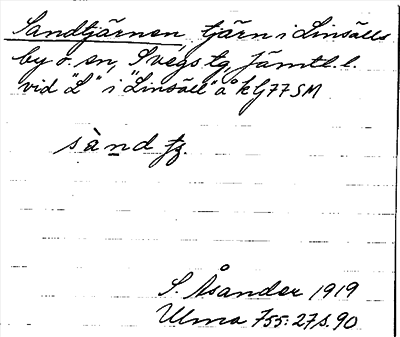 Sandtjärnen tjärn i Linsälls
by o. sn, Svegs tg, Jämtl. l.
vid "L" i "Linsäll" å kG77SM
sànd tj.
S. Åsander 1919
Ulma 755:27 s. 90